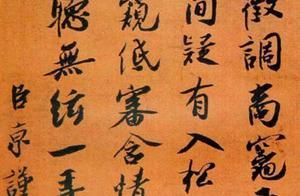 徵調商竈
間疑有入松
窺低審含情
聽無絃一弄
臣京謹